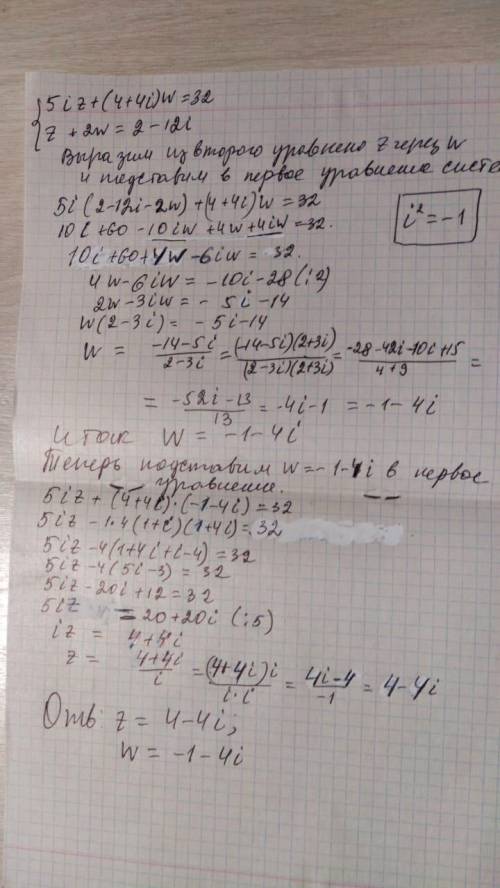 5iz+(4+4i)w=32
z+2w=2-12i
Выразим из второго уравнено z через w
и подставим в первое уравнение систем
5i(2-12i-2w)+(4+4i)w=32
i²=-1
10i+60-10iw+4w+4iw=32.
10i+60+4w-6iw=32.
4w-6iw=-10i-28(:2)
2w-3iw=-5i-14
w(2-3i)=-5i-14
w=(-14-5i)/(2-3i)=((-14-5i)(2+3i))/((2-3i)(2+3i))=(-28-42i-10i+15)/(4+9)=
=(-52i-13)/13=-4i-1=-1-4i
Итак w=-1-4i
Теперь подставим w=-1-4i в первое
уравнение.
5iz+(4+4i)·(-1-4i)=32
5iz-1·4(1+i)(1+4i)=32
5iz-4(1+4i+i-4)=32
5iz-4(5i-3)=32
5iz-20i+12=32
5iz=20+20i (:5)
iz=4+4i
z=(4+4i)/i=((4+4i)i)/(i·i)=(4i-4)/(-1)=4-4i
Отв: z=4-4i;
w=-1-4i